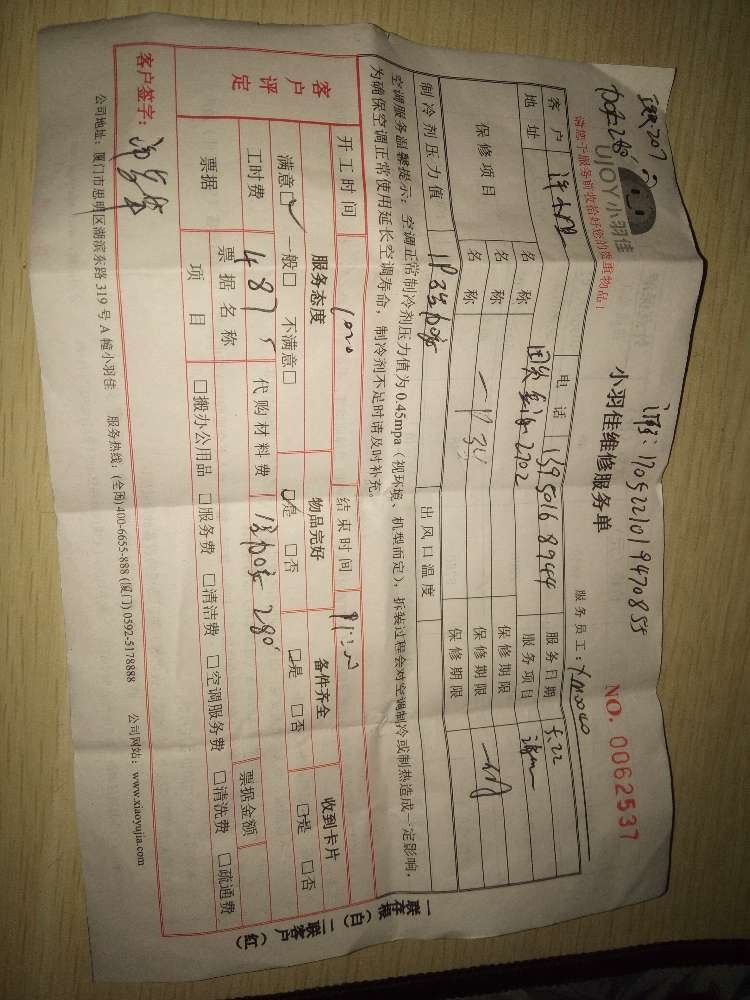 UJOY小羽佳
请您于服务前收拾好您的贵重物品！
小羽佳维修服务单
NO. 0062537
170522101947085
服务员工：XM0040
客户
电话 13950168944
服务日期 5.22
地址
2702
服务项目
保修项目
名称
保修期限
名称
保修期限
名称
保修期限
制冷剂压力值
出风口温度
空调服务温馨提示：空调正常制冷剂压力值为0.45mpa（视环境、机型而定），拆装过程会对空调制冷或制热造成一定影响，
为确保空调正常使用延长空调寿命，制冷剂不足时请及时补充。
开工时间 1020
结束时间
客户评定
服务态度
物品完好
备件齐全
收到卡片
满意☑ 一般□ 不满意□
☑是 □否
□是 □否
□是 □否
工时费 487
代购材料费 280
票据
票据名称
票据金额
项目
□搬办公用品 □服务费 □清洁费 □空调服务费 □清洗费 □疏通费
客户签字：
公司地址：厦门市思明区湖滨东路319号A幢小羽佳 服务热线：(全国)400-6655-888 (厦门) 0592-5178888 公司网站：www.xiaoyujia.com
一联存根（白）二联客户（红）